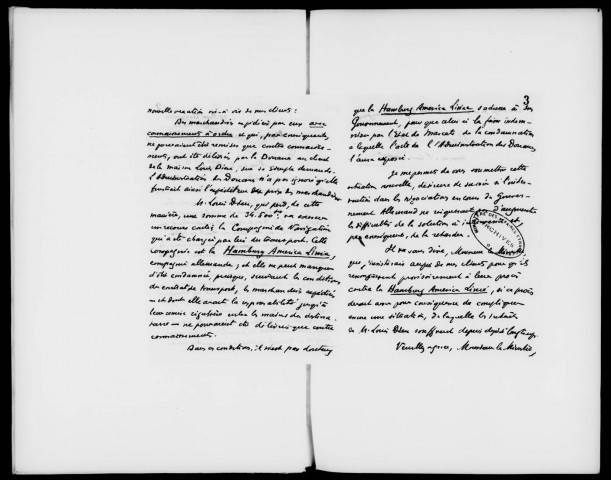 nouvelle vexation vis à vis de mes clients :
Des marchandises expédiées par eux avec
connaissements à ordre et qui, par conséquent,
ne pouvaient être remises que contre connaisse-
ments, ont été délivrées par la Douane au client
de la maison Louis Dieu, sur sa simple demande.
L'Administration des Douanes n'a pas ignoré qu'elle
frustrait ainsi l'expéditeur du prix des marchandises
M. Louis Dieu, qui perd, de cette
manière, une somme de 34.500 f. va exercer
un recours contre la Compagnie de Navigation
qui a été chargée par lui du transport. Cette
compagnie est la Hamburg America Linie,
compagnie allemande, et elle ne peut manquer
d'être condamnée, puisque, suivant les conditions
du contrat de transport, les marchandises expédiées
— et dont elle avait la responsabilité jusqu'à
leur remise régulière entre les mains du destina-
taire — ne pouvaient être délivrées que contre
connaissements.
Dans ces conditions, il n'est pas douteux
3
que la Hamburg America Linie s'adresse à son
Gouvernement, pour que celui-ci la fasse indem-
niser par l'Etat de la condamnation
à laquelle l'acte de l'Administration des Douanes
l'aura exposée.
Je me permets de vous soumettre cette
situation nouvelle, désireux de savoir si l'inter-
vention dans les négociations en cours du Gouver-
nement Allemand ne risquerait pas d'augmenter
les difficultés de la solution à intervenir et,
par conséquent, de la retarder.
et que j'insisterais auprès de mes clients pour qu'ils
renonçassent provisoirement à leur procès
contre la Hamburg America Linie, si ce procès
devait avoir pour conséquence de compliquer
encore une situation, de laquelle les intérêts
de M. Louis Dieu souffrent depuis déjà longtemps.
Veuillez agréer, Monsieur le Ministre,
ARCHIVES